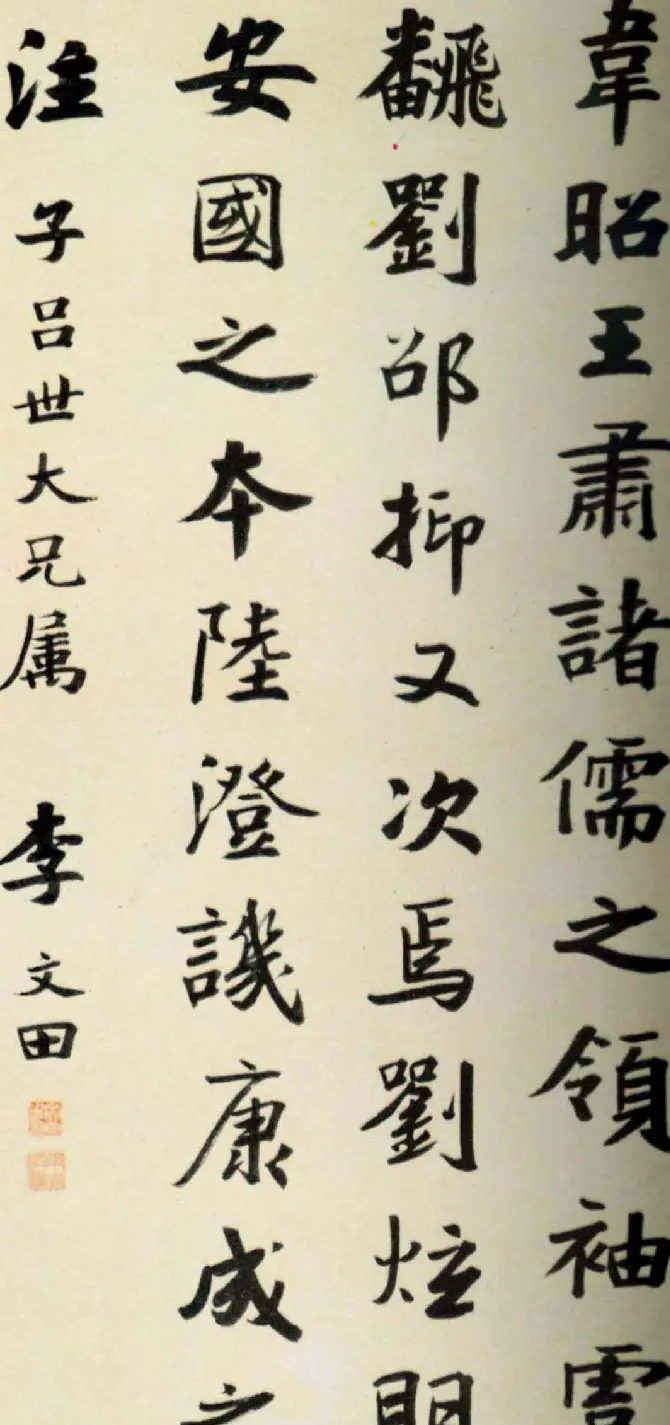 韋昭王肅諸儒之領袖虞
飜劉邵抑又次焉劉炫明
安國之本陸澄譏康成之
注
子呂世大兄属
李文田